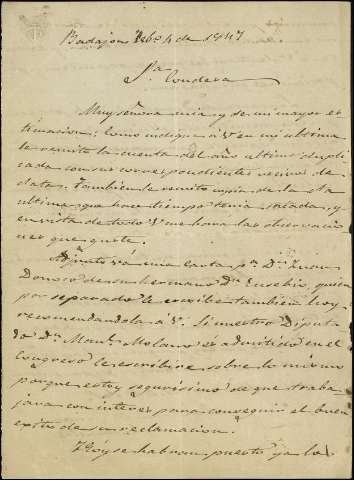 Badajoz Feb.o 4 de 1847
S.ra Condesa
Muy señora mia y de mi mayor es
timacion: Como indiqué á V. en mi ultima
le remito la cuenta del año ultimo dupli
cada con sus correspondientes recivos de
data. Tambien le remito copia de la
ultima que hace tiempo tenia saldada, y
en vista de todo V. me hara las observacio
nes que guste.
Adjunto vá una carta p.a D. Juan
Donoso de su hermano D.n Eusebio, quien
por separado le escribe tambien hoy
recomendandola á V. Si nuestro Diputa
do D.n Man.l Molano es admitido en el
Congreso le escribire sobre lo mismo
porque estoy segurisimo de que traba
jara con interes para conseguir el buen
exito de su reclamacion.
Hoy se habran puesto ya la